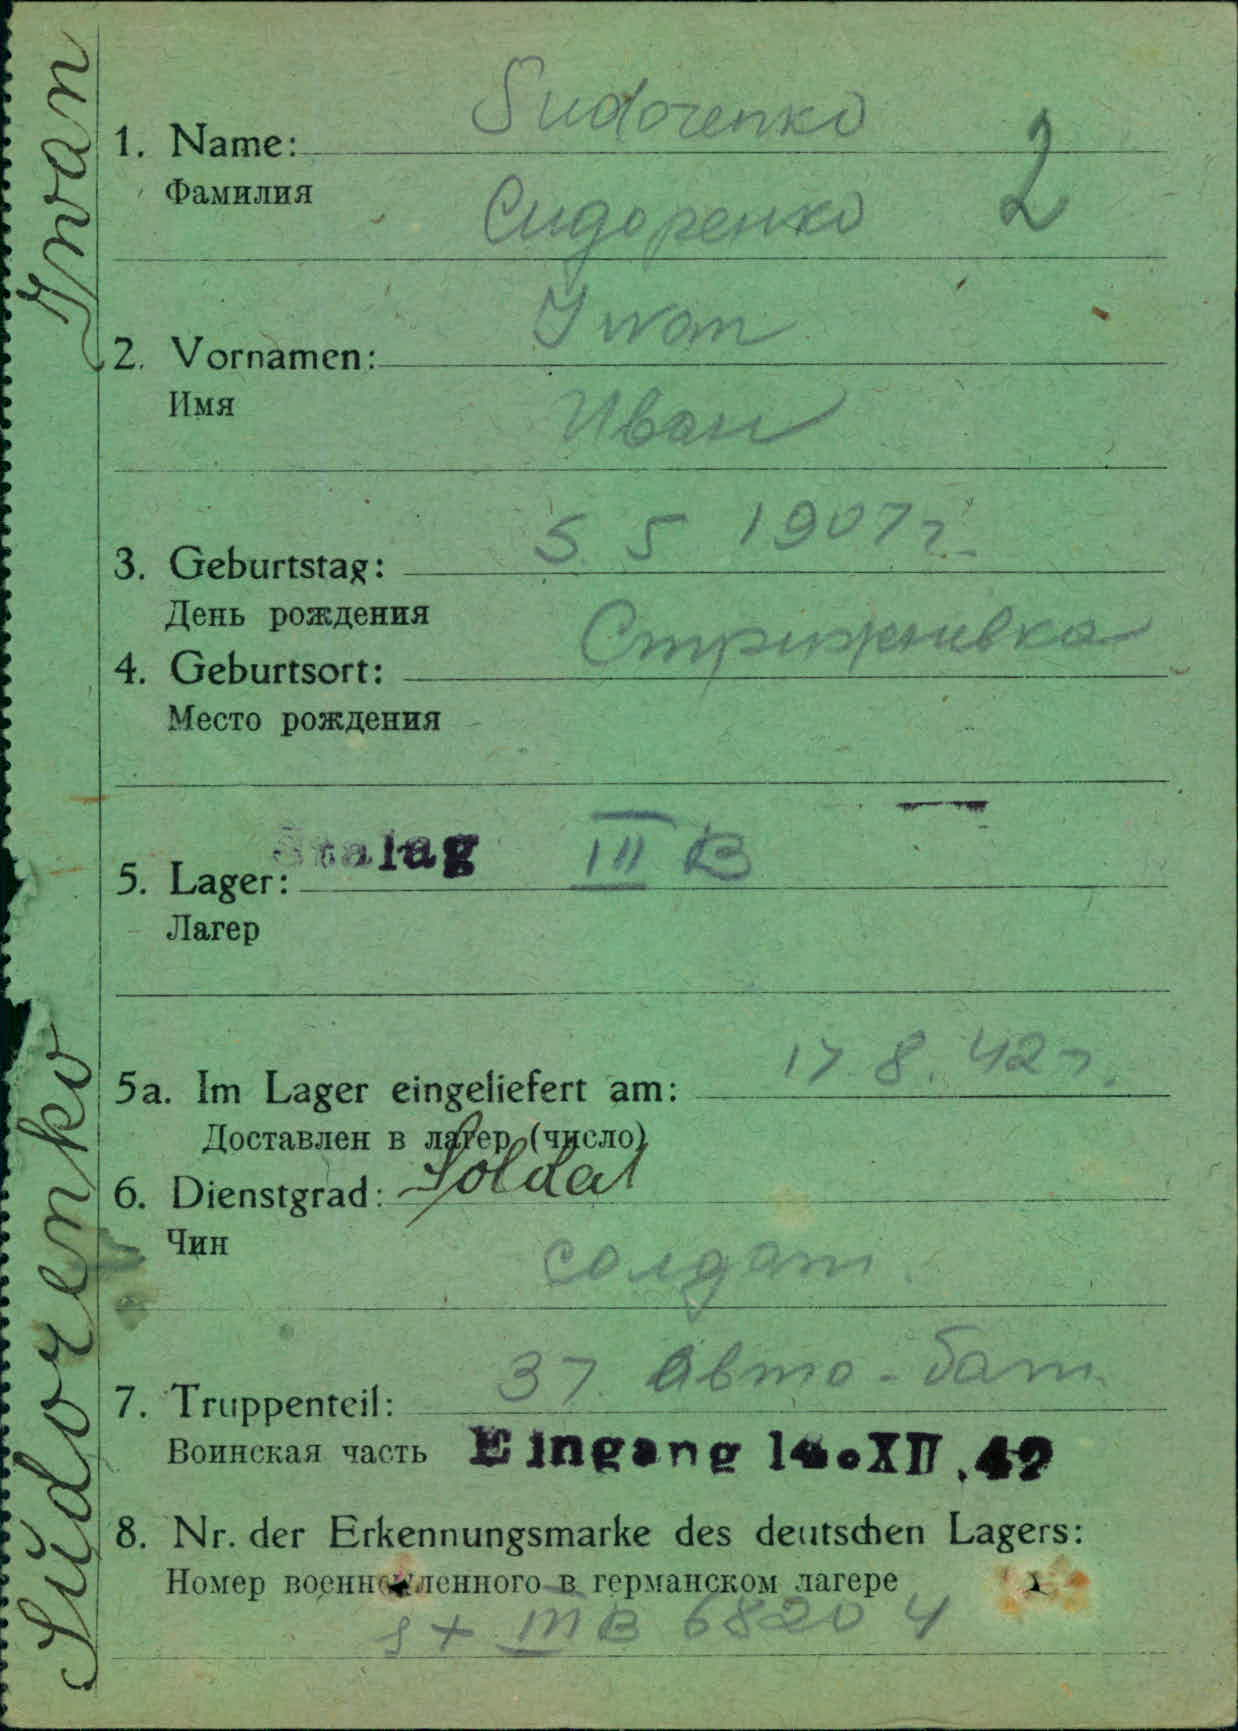 Sudorenko Iwan
Sudorenko
1. Name:
Фамилия
Сидоренко 2
Iwan
2. Vornamen:
Имя
Иван
5. 5 1907 г.
3. Geburtstag:
День рождения
Стрижнивка
4. Geburtsort:
Место рождения
Stalag III B
5. Lager:
Лагер
5a. Im Lager eingeliefert am: 17. 8. 42 г.
Доставлен в лагер (число)
6. Dienstgrad: Soldat
Чин
солдат.
7. Truppenteil: 37. авто-бат.
Воинская часть Eingang XII.42
8. Nr. der Erkennungsmarke des deutschen Lagers:
Номер военнопленного в германском лагере
st III B 68204